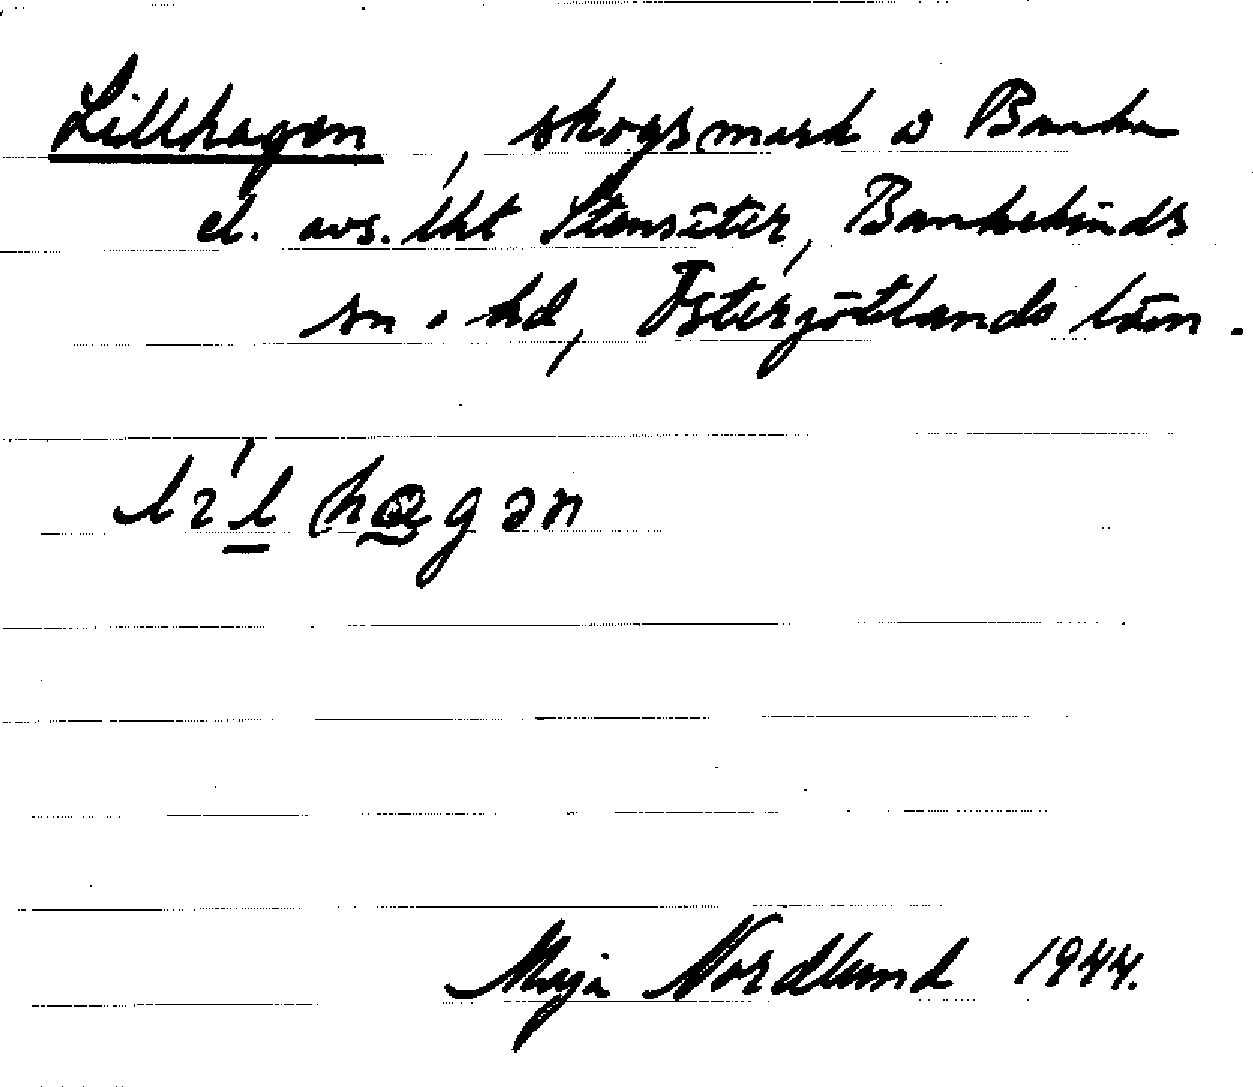 Lillhagen, skogsmark o Banka
el. avs. lht Stensäter, Bankekinds
sn o hd, Östergötlands län.
Maja Nordlund 1944.